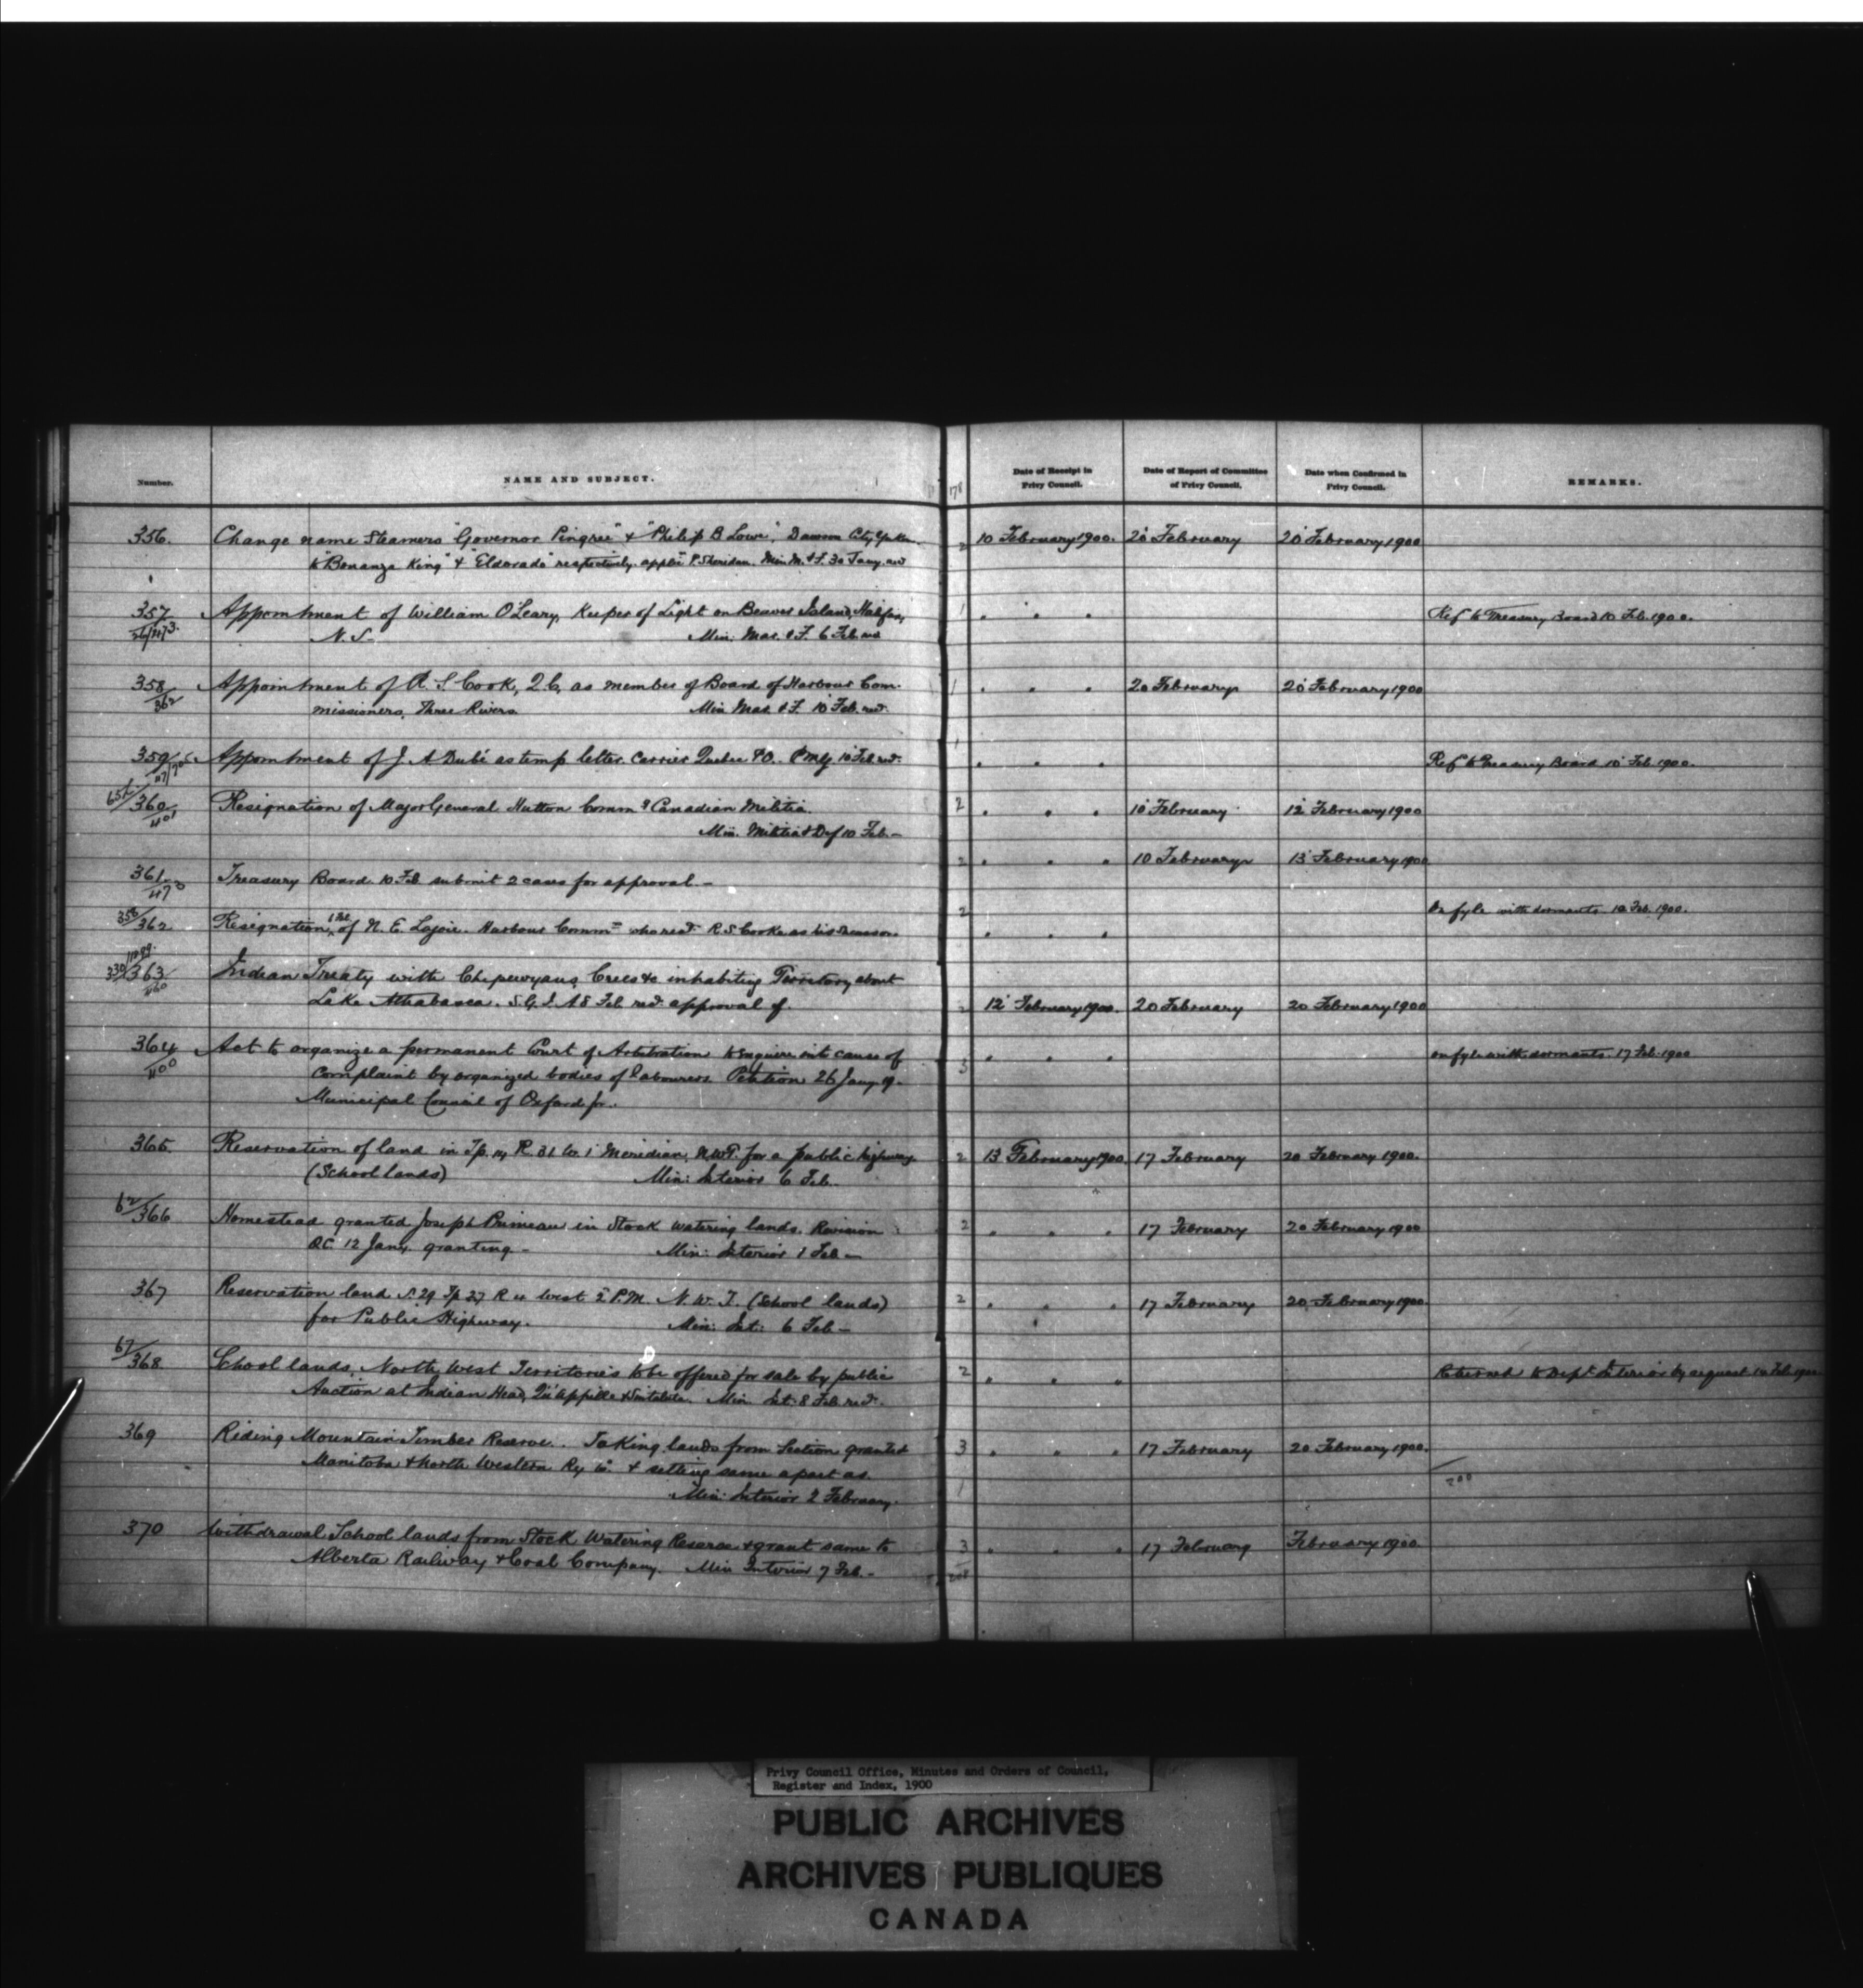 Number.
NAME AND SUBJECT.
Date of Receipt in Privy Council.
Date of Report of Committee of Privy Council.
Date when Confirmed in Privy Council.
REMARKS.
356. Change name Steamers "Governor Pingree" & "Philip B Low", Dawson City Yukon 2 10 February 1900. 20 February 20 February 1900
to "Bonanza King" & "Eldorado" respectively. P. Sheridan. Min M. & F. 30 Jany. red
357 Appointment of William O'Leary, Keeper of Light on Beaver Island, Halifax, 1 " " " Ref to Treasury Board 10 Feb. 1900.
N.S. Min: Mar. & F. 6 Feb. red
358/362 Appointment of R. S. Cook, Q.C. as member of Board of Harbour Com- 1 " " " 20 February 20 February 1900
missioners, Three Rivers Min Mar. & F. 10 Feb. red.
359 Appointment of J. A Dubé as temp letter carrier Quebec P.O. PMG 10 Feb red. 1 " " " Ref to Treasury Board 10 Feb. 1900.
360/401 Resignation of Major General Hutton Comm'g Canadian Militia. 2 " " " 10 February 12 February 1900
Min. Militia & Def 10 Feb.-
361/470 Treasury Board. 10 Feb submit 2 cases for approval.- 2 " " " 10 February 13 February 1900
358/362 Resignation, of N. E. Lajoie. Harbour Comm" R. S. Cooke as his 2 " " " On fyle with dormants 10 Feb. 1900.
330/363 Indian Treaty with Chipewyans, Crees &c inhabiting Territory about
Lake Athabasca. S. G. I. A 8 Feb. red. approval of. 2 12 February 1900. 20 February 20 February 1900
364/400 Act to organize a permanent Court of Arbitration to enquire into cause of 3 " " " on fyle with dormants. 17 Feb. 1900
Complaint by organized bodies of labourers. Petition 26 Jany
Municipal Council of Oxford
365. Reservation of land in Tp. R. 31 W. 1 Meridian, N.W.T. for a public highway 2 13 February 1900. 17 February 20 February 1900.
(School lands) Min: Interior 6 Feb.
62/366 Homestead granted Joseph Primeau in Stock watering lands. Revision 2 " " 17 February 20 February 1900
O.C. 12 Jany. granting - Min: Interior 1 Feb -
367 Reservation land S. 29 Tp 27 R 4 West 2 P.M. N. W. T. (School lands) 2 " " " 17 February 20 February 1900.
for Public Highway. Min: Int: 6 Feb -
67/368 School lands, North West Territories to be offered for sale by public 2 " " " Returned to Dept Interior by request 14 Feb. 1900
Auction at Indian Head, Qu'appelle & Sintaluta. Min Int: 8 Feb. red.
369 Riding Mountain Timber Reserve. Taking lands from Section granted 3 " " " 17 February 20 February 1900.
Manitoba & North Western Ry Co. & setting same apart as
Min: Interior 2 February.
370 Withdrawal School lands from Stock Watering Reserve & grant same to 3 " " " 17 February February 1900
Alberta Railway & Coal Company. Min Interior 7 Feb.-
Privy Council Office, Minutes and Orders of Council,
Register and Index, 1900
PUBLIC ARCHIVES
ARCHIVES PUBLIQUES
CANADA